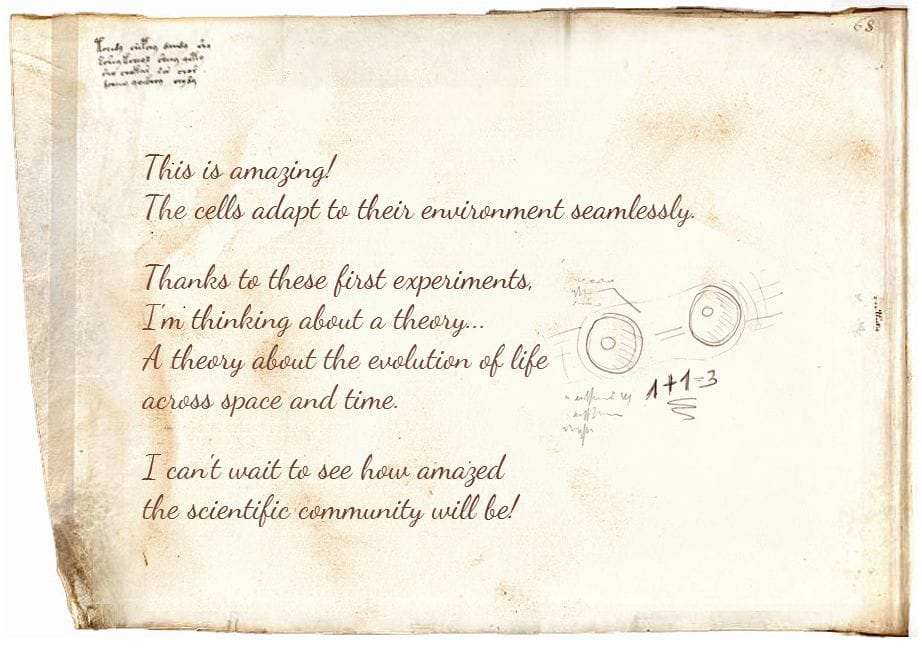 68
This is amazing!
The cells adapt to their environment seamlessly.
Thanks to these first experiments,
I'm thinking about a theory...
A theory about the evolution of life
across space and time.
1+1=3
I can't wait to see how amazed
the scientific community will be!